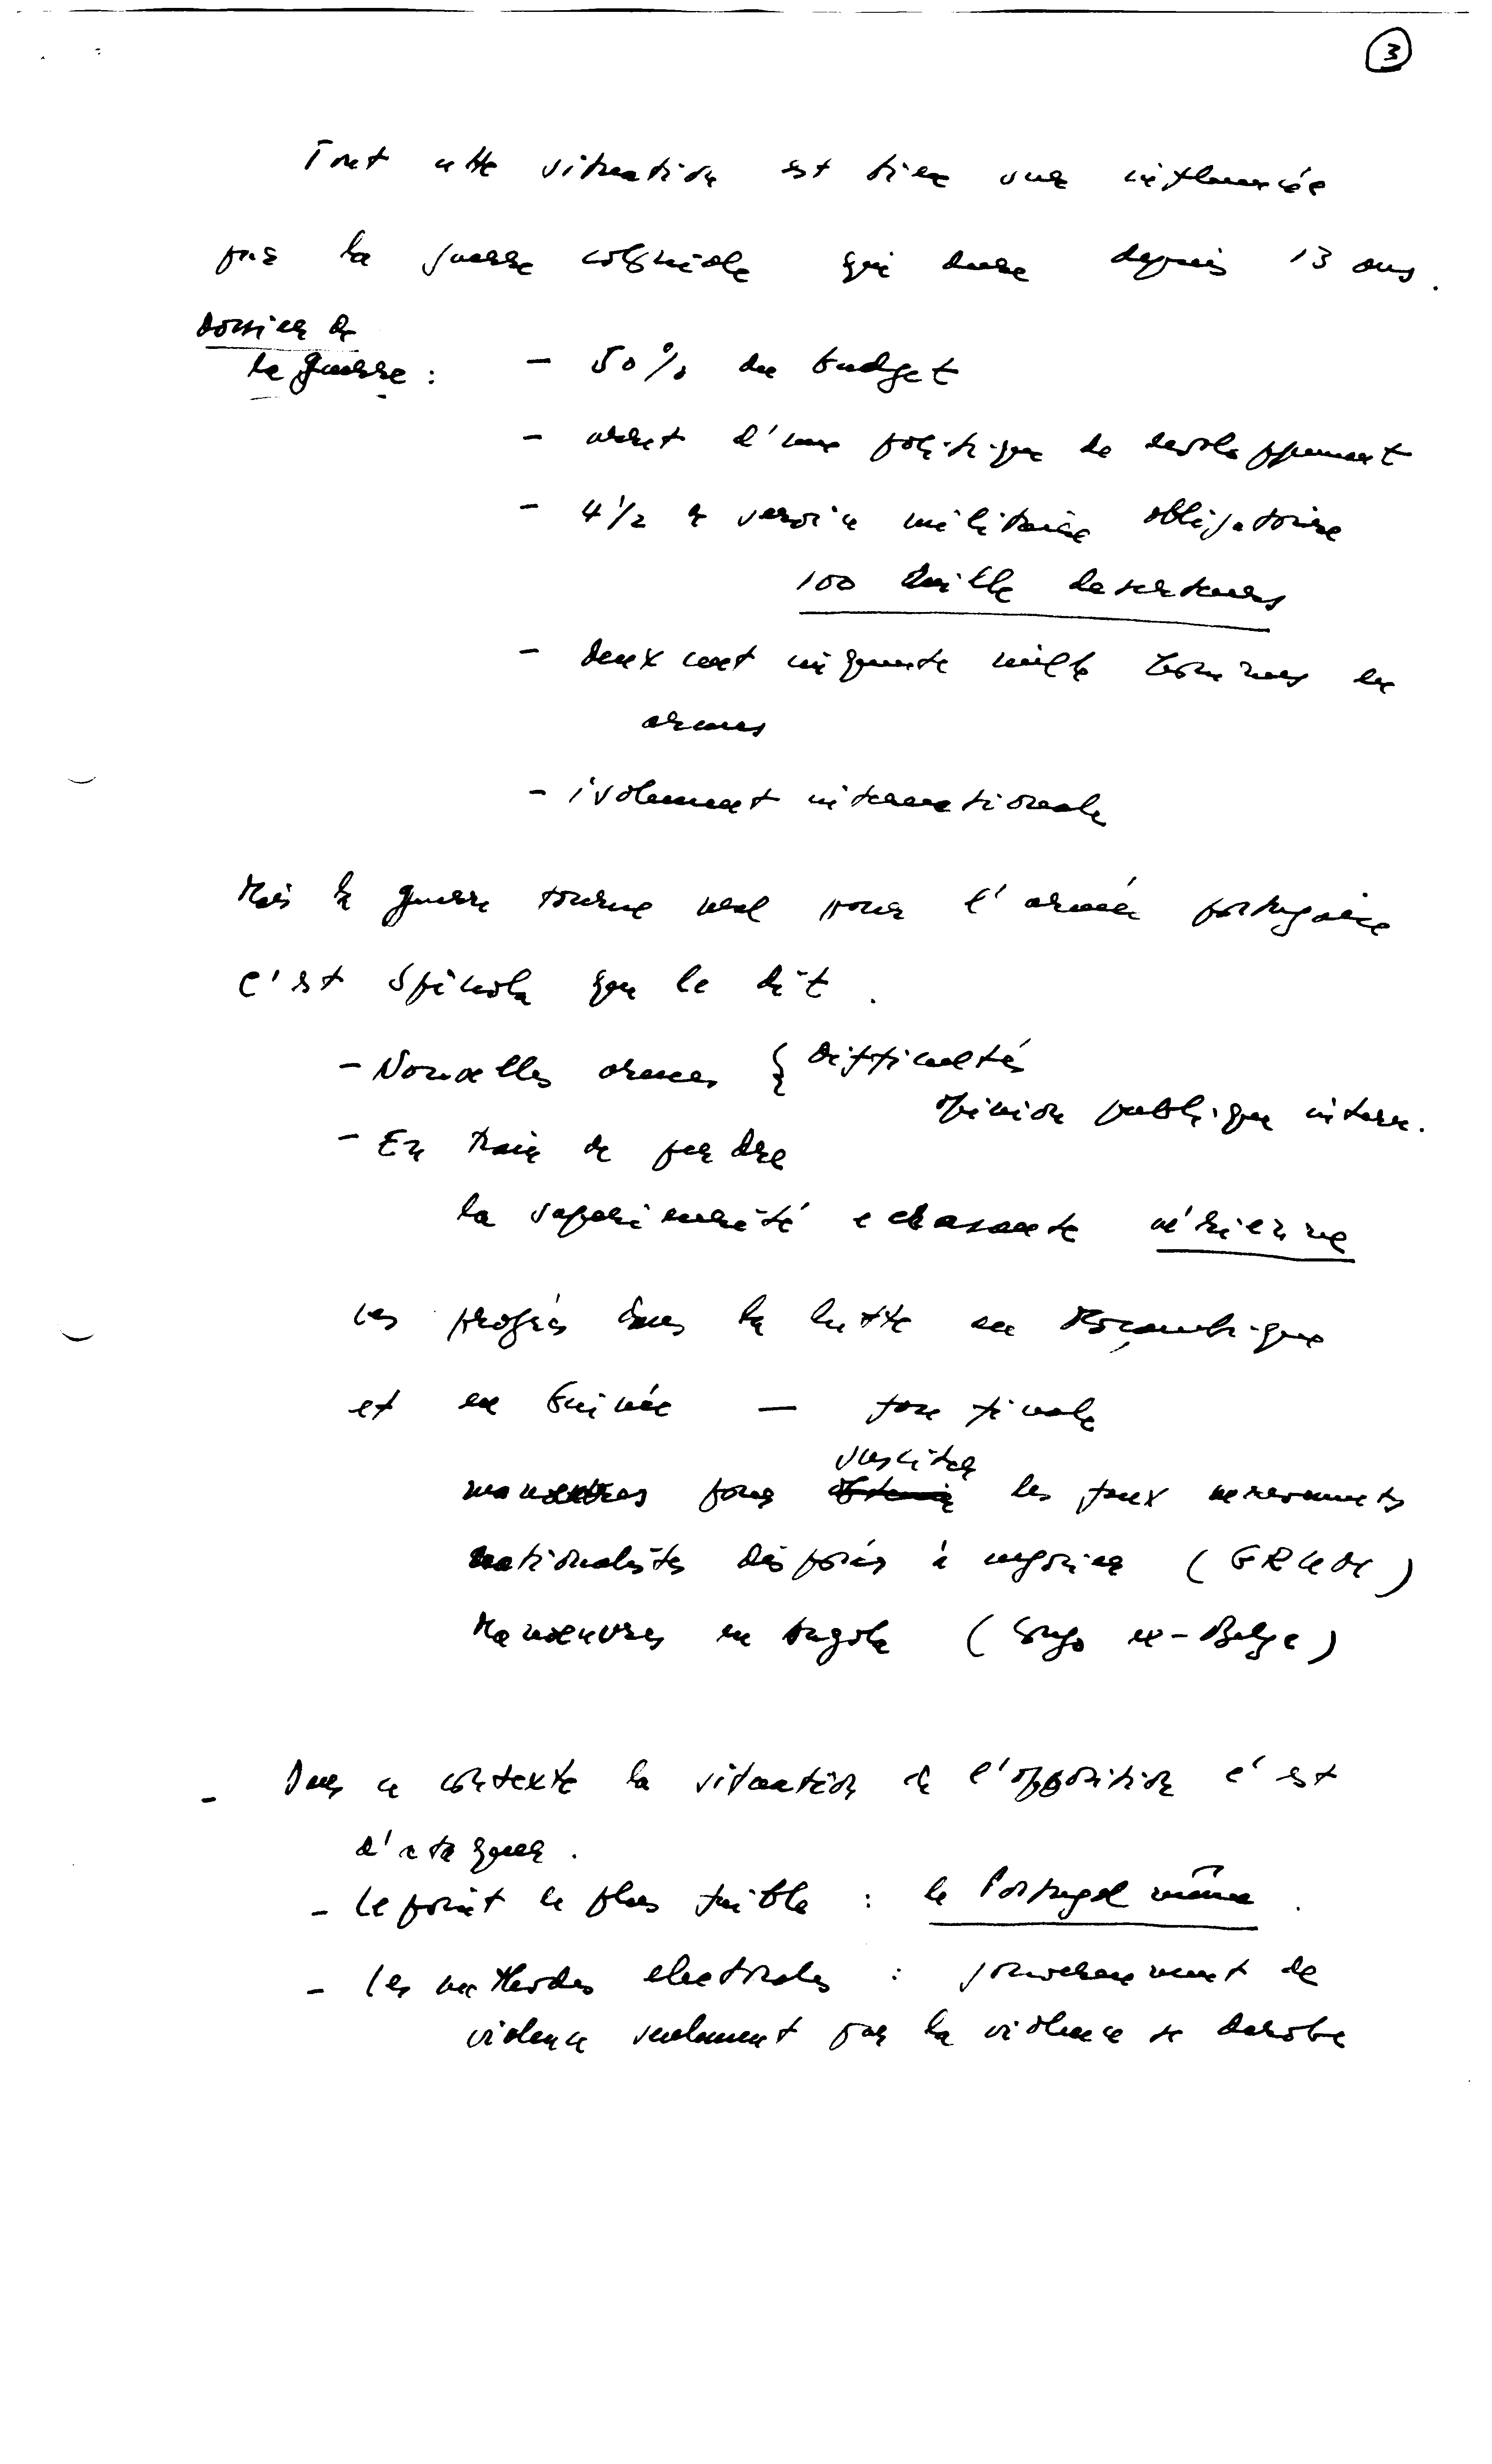 3
Tout cette situation est bien sur influencée
par la guerre coloniale qui dure depuis 13 ans.
Dossier de
la guerre :
- 50% du budget
- arret d'une politique de developpement
- 4 1/2 de service militaire obligatoire
100 mille deserteurs
- deux cent cinquante mille hommes en
armes
- isolement internationale
Mais la guerre tourne mal pour l'armée portugaise
c'est Spinola que le dit.
- Nouvelles armes { difficultés
opinion publique intern.
- En train de perdre
la superiorité ecrasante aérienne
Les progrés dans la lutte au Moçambique
et en Guinée —
manoeuvres pour susciter les faux mouvements
nationalistes disposés à negocier (GRUM)
Manoeuvres en Angola (Congo ex-Belge)
- Dans ce contexte la situation de l'opposition c'est
d'ataquer.
- Le point le plus faible : le Portugal même.
- Les methodes electorales : gouvernement de
violence seulement par la violence se derobe